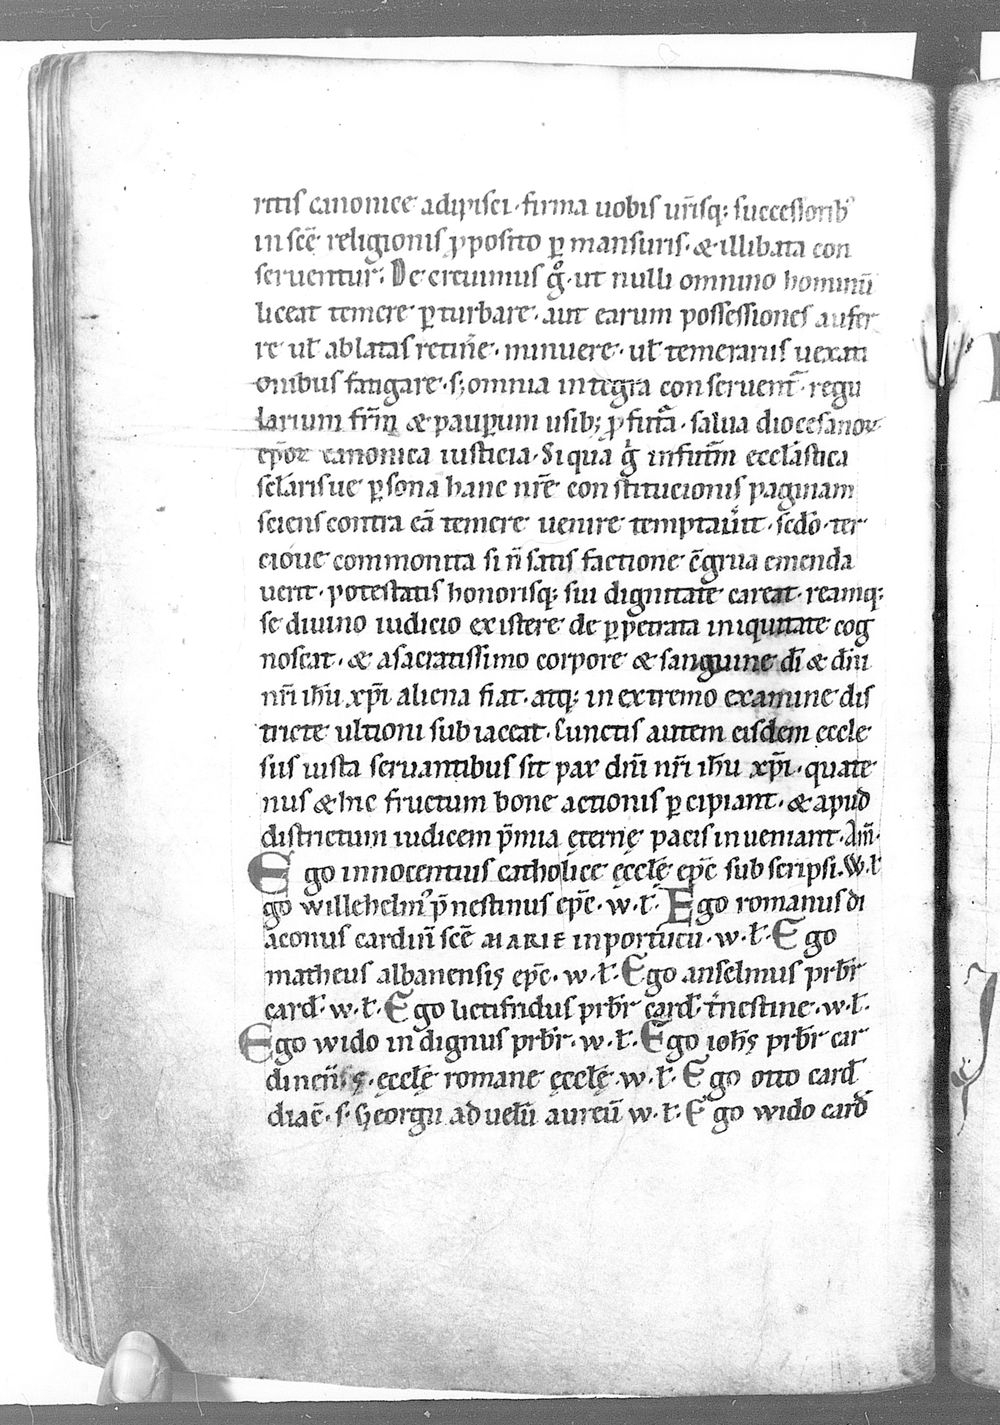 ritis canonice adipisci · firma uobis ur̃isq; successorib᷒
in scẽ religionis ꝓposito ꝑ mansuris · & illibata con
seruentur; De creuimus gͦ · ut nulli omnino hominũ
liceat temere ꝑturbare · aut earum possessiones aufer
re ul̃ ablatas retiñe · minuere · ul̃ temerariis uexati
onibus fatigare · s; omnia integra conseruent᷑ · regu
larium fr̃m & pauꝑum usib; ꝓfut᷑a · salua diocesanoꝝ
ep̃oꝝ canonica iusticia · Si qua gͥ infut᷑m eccl̃astica
sc̃larisue ꝑsona hanc nr̃e constitucionis paginam
sciens contra eã temere uenire temptau̾it · sc̃do · ter
cioue commonita si ñ satis factione c̃grua emenda
uerit · potestatis honorisq; sui dignitate careat · reamq;
se diuino iudicio existere de ꝑpetrata iniquitate cog
noscat · & a sacratissimo corpore & sanguine dĩ & dñi
nr̃i ihũ xp̃i aliena fiat · atq; in extremo examine dis
tricte ultioni subiaceat · Cunctis autem eisdem eccle
siis iusta seruantibus sit pax dñi nr̃i ihũ xp̃i · quate
nus & hic fructum bone actionis ꝑcipiant · & apud
districtum iudicem p̃mia ęternę pacis inueniant · Am̃ ·
Ego innocentius catholice ęcclę̃ ep̃c subscripsi · W · l̃
go willehelm᷒ p̃nestinus ep̃c · w · l̃ · Ego romanus di
aconus cardiñ scẽ MARIE in porticu · w · l̃ · Ego
matheus albanensis ep̃c · w · l̃ · Ego anselmus prb̃r
card̃ · w · l̃ · Ego lictifridus prb̃r card̃ · t᷑nestine · w · l̃ ·
Ego wido indignus prb̃r · w · l̃ · Ego ioh̃s prb̃r car
ęcclę̃ romane ęcclę̃ · w · l̃ · Ego otto card̃
diac̃ · s · Georgii ad uelũ aureũ w · l̃ · Ego wido card̃